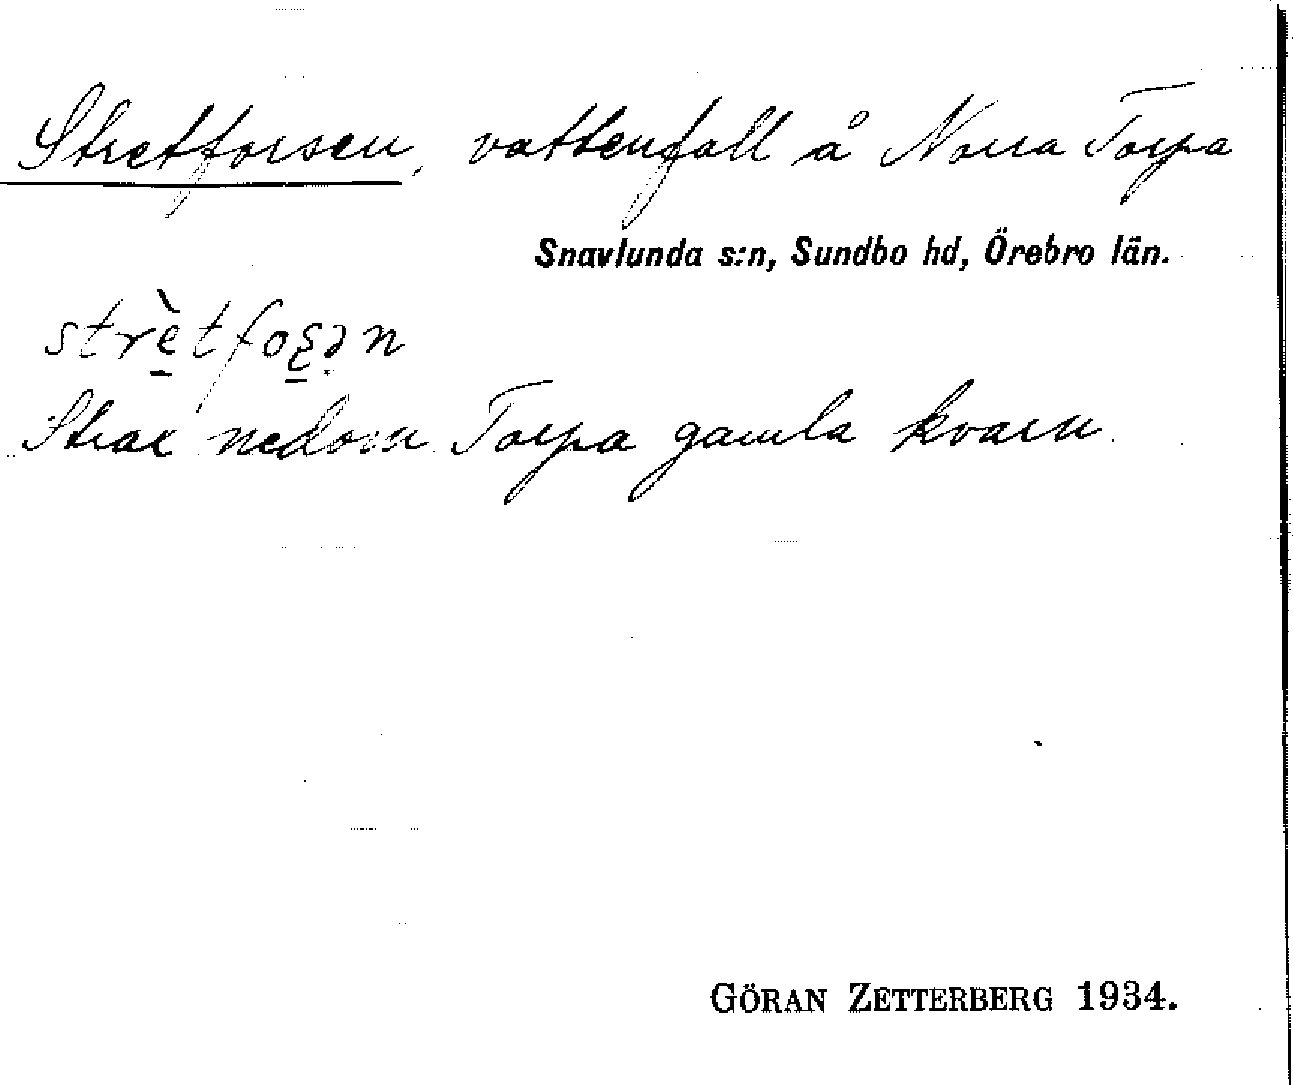 Stretforsen, vattenfall å Norra Torpa
Snavlunda s:n, Sundbo hd, Örebro län.
strètfoʂən
Strax nedom Torpa gamla kvarn.
GÖRAN ZETTERBERG 1934.